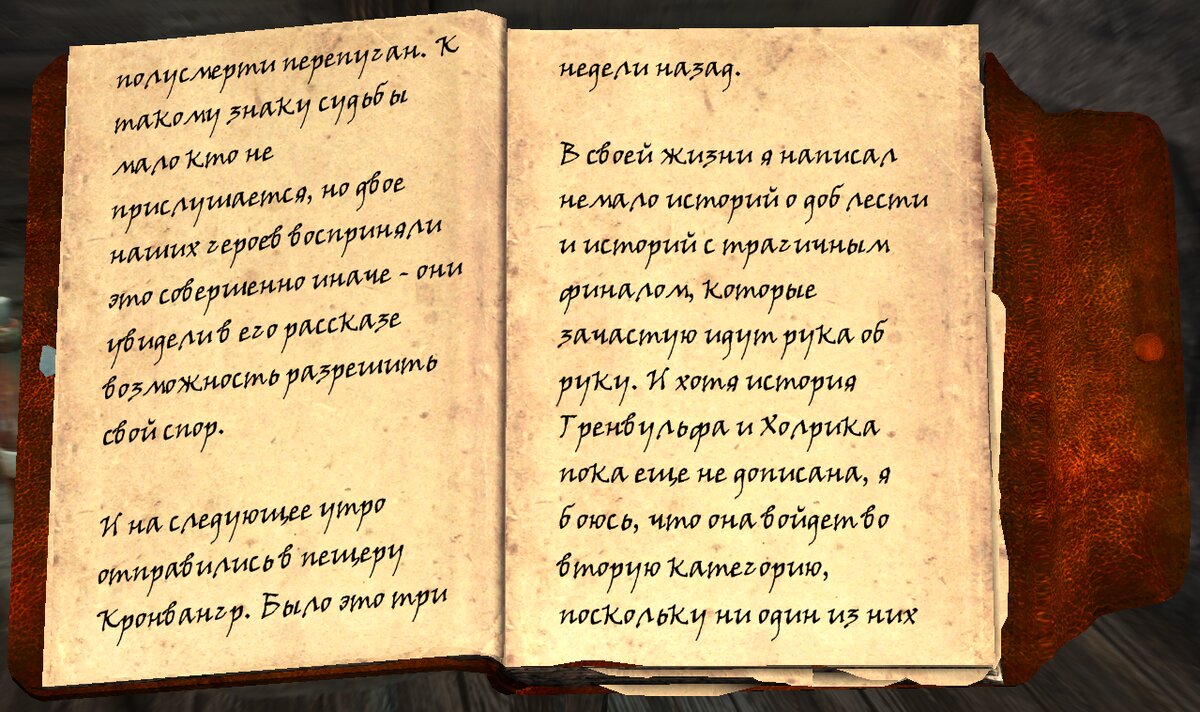 полусмерти перепуган. К
такому знаку судьбы
мало кто не
прислушается, но двое
наших героев восприняли
это совершенно иначе - они
увидели в его рассказе
возможность разрешить
свой спор.
И на следующее утро
отправились в пещеру
Кронвангр. Было это три
недели назад.
В своей жизни я написал
немало историй о доблести
и историй с трагичным
финалом, которые
зачастую идут рука об
руку. И хотя история
Гренвульфа и Холрика
пока еще не дописана, я
боюсь, что она войдет во
вторую категорию,
поскольку ни один из них